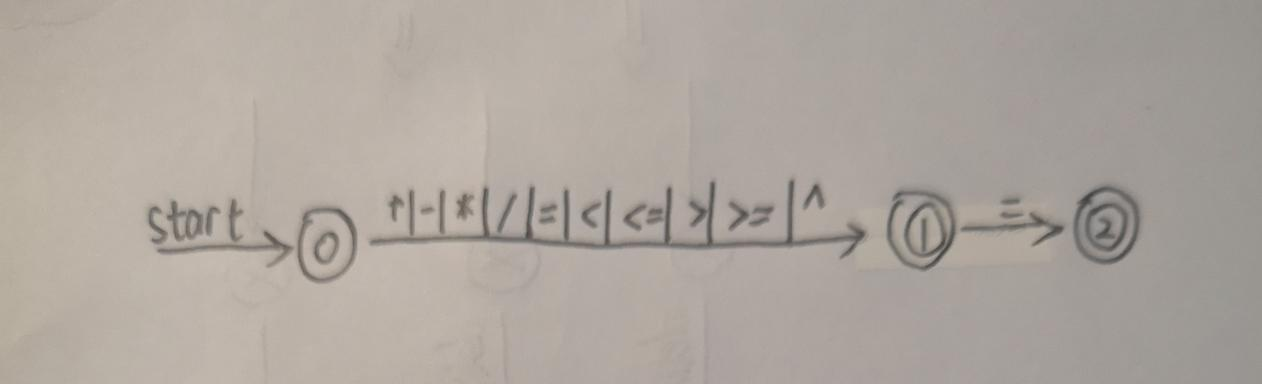 start 0 +|-|*|/|=|<|<=|>|>=|^ 1 = 2